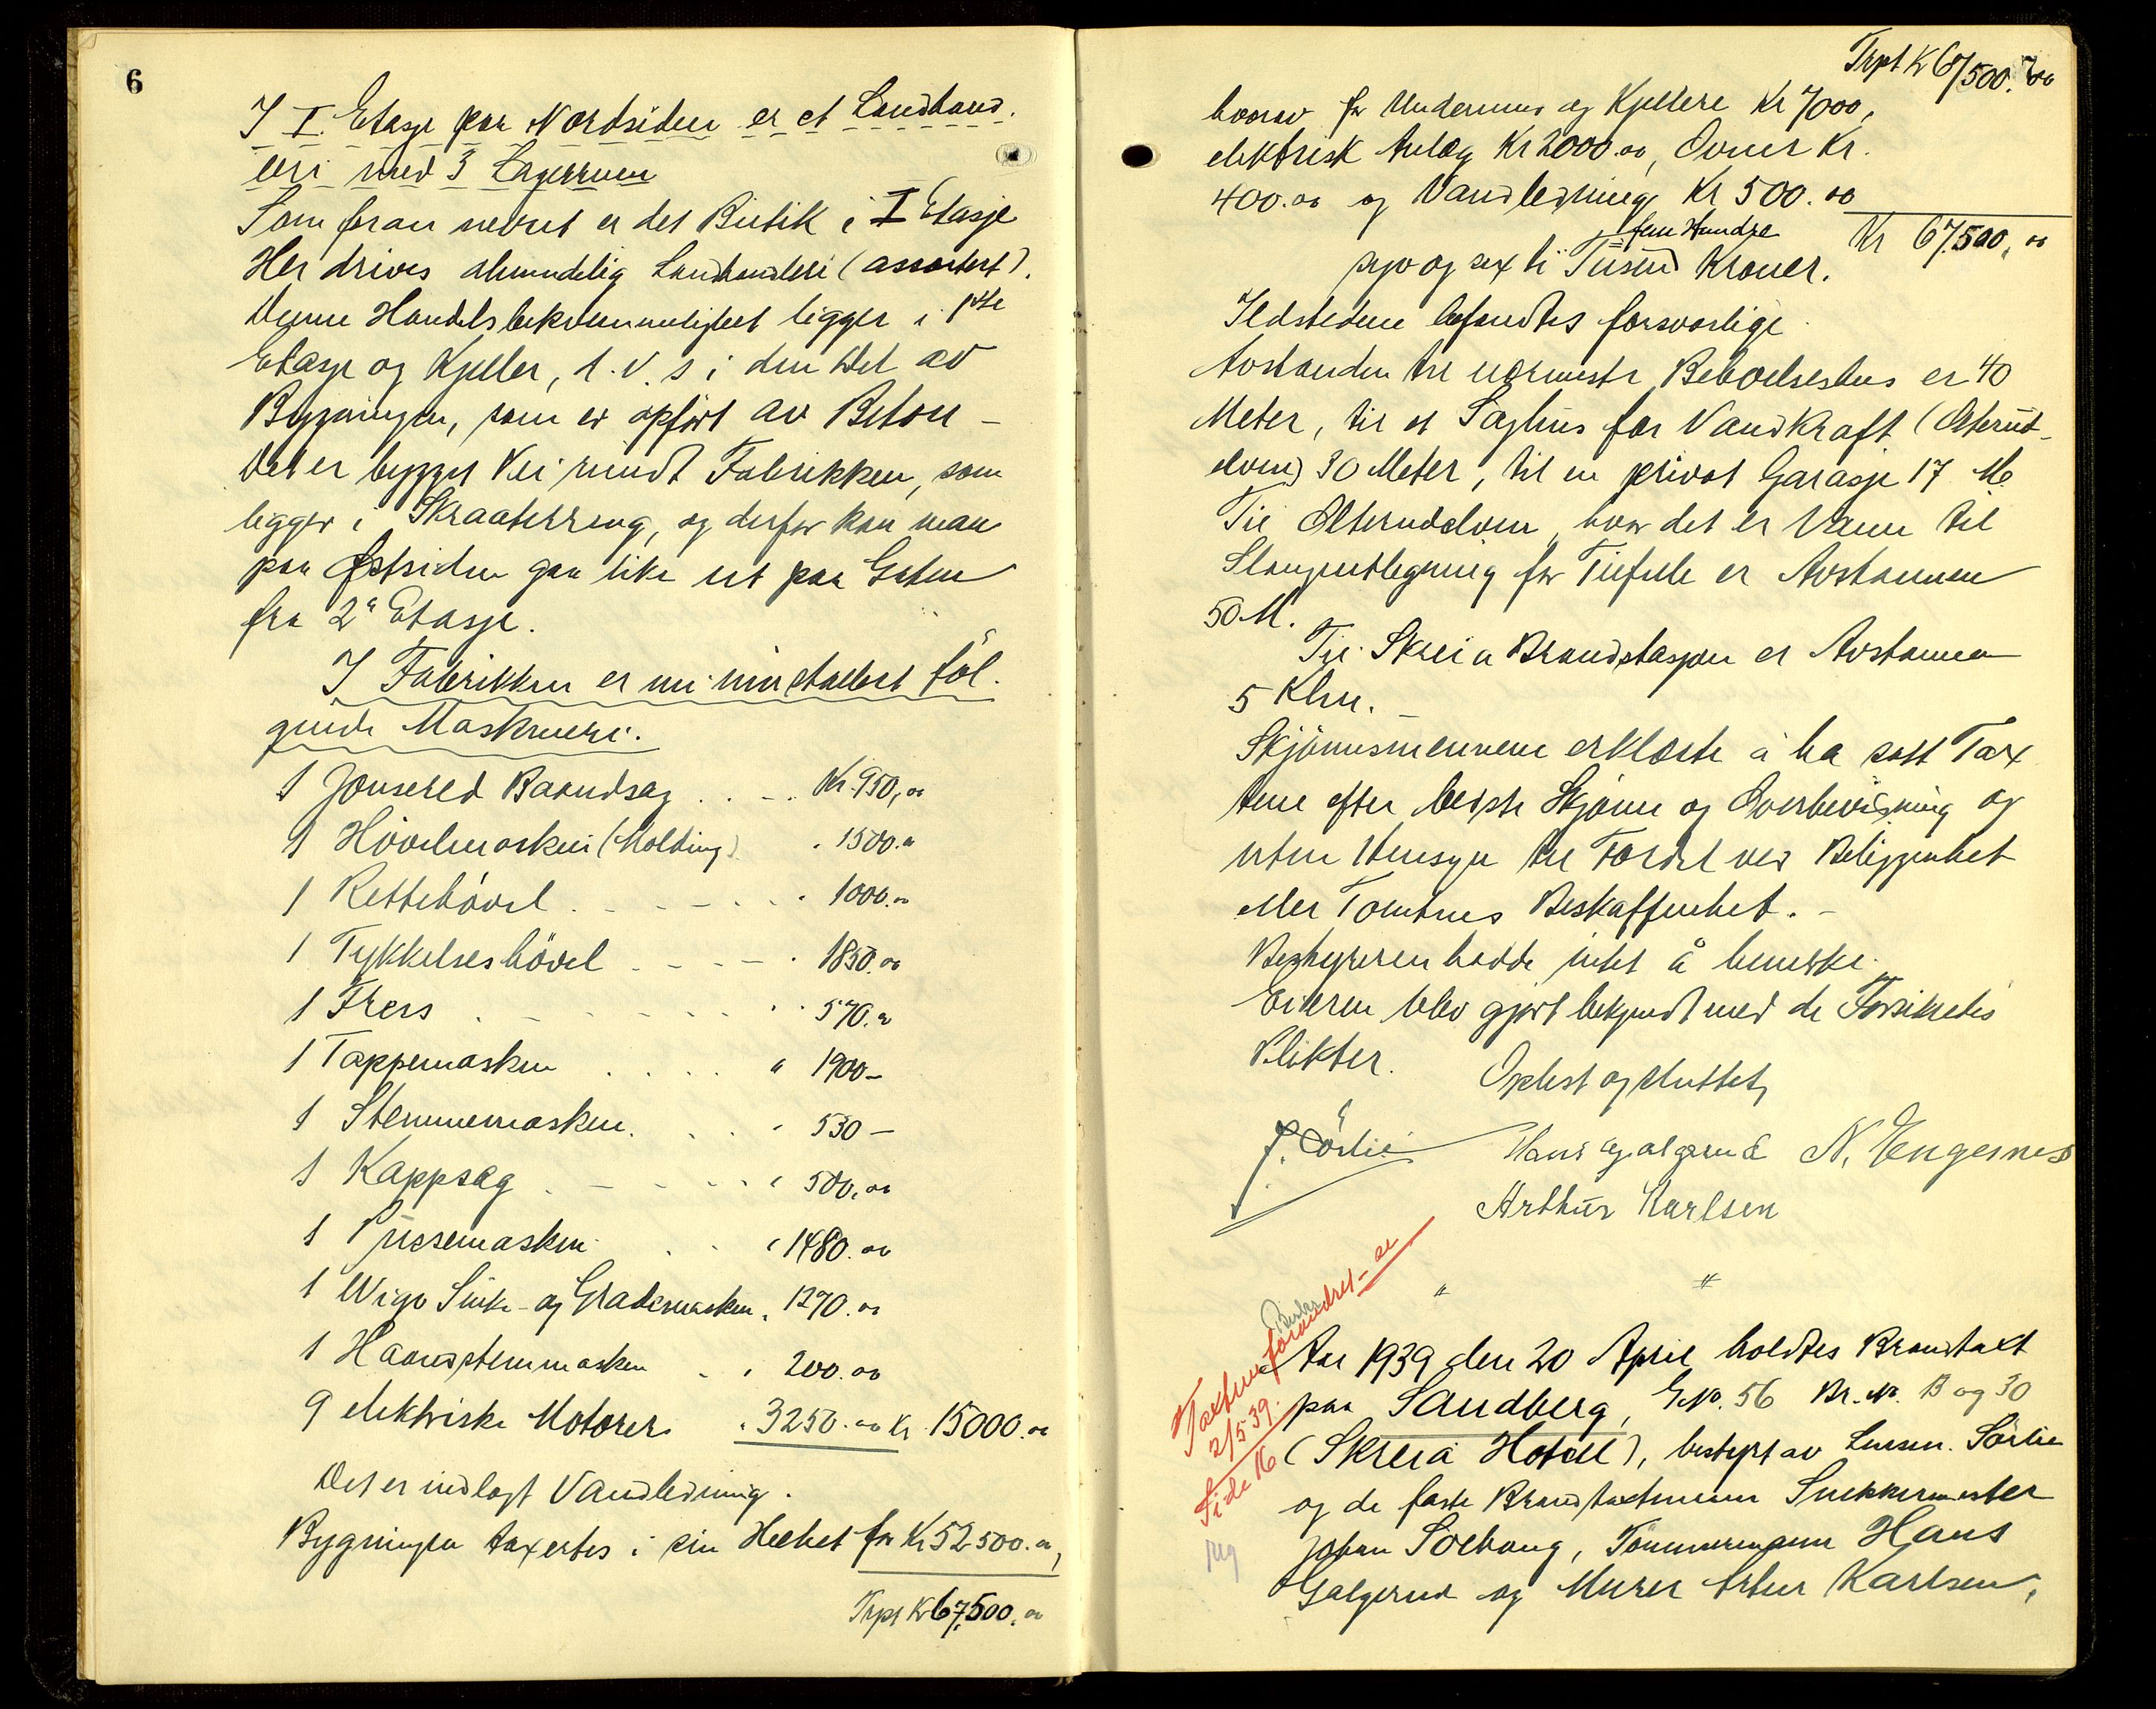 6
I I. Etasje paa Nordsiden er et Landhand.
leri med 3 Lagerrum
Som foran nevnt er det Butik i I Etasje
Her drives almindelig Landhandleri (assortert).
Denne Handelsbekvemmelighet ligger i 1ste
Etasje og Kjeller, d.v.s i den Del av
Bygningen, som er opført av Beton -
Det er bygget Vei rundt Fabrikken, som
ligger i Skraaterreng, og derfor kan man
paa Østsiden gaa like ut paa Gaten
fra 2e Etasje.
I Fabrikken er nu innstallert føl-
gende Maskineri.
1 Jonsered Baandsag . . - . Kr. 950,00
1 Høvelmaskin (Molding) " 1500.00
1 Rettehøvel . - - - . . " 1000.00
1 Tykkelseshøvel . - - - . " 1850.00
1 Fres . - - - . . . " 570.00
1 Tappemaskin . . . . " 1900-
1 Stemmemaskin. . . . " 530-
1 Kappsag . - - . . " 500.00
1 Pussemaskin . . " 1480.00
1 Wigo Sinke- og Grademaskin " 1270.00
1 Haandstemmaskin . " 200.00
9 elektriske Motorer " 3250.00 Kr 15000.00
Det er indlagt Vandledning.
Bygningen taxertes i sin Helhet for Kr 52500.00,
Trpt Kr 67,500.00
Trpt Kr 67,500.00
hvorav for Undermur og Kjellere Kr 7000,
elektrisk Anlæg Kr 2000.00, Ovner Kr.
400.00 og Vandledning Kr 500.00
Kr 67,500,00
fem Hundre
syv og sexti Tusend Kroner.
Ildstedene befandtes forsvarlige.
Avstanden til nærmeste Beboelseshus er 40
Meter, til et Saghus for Vandkraft (Olterud-
elven) 30 Meter, til en privat Garasje 17 M.
Til Olterudelven, hvor det er Vann til
Slangeutlegning for Tilfelle er Avstannen
50 M.
Til Skreia Brandstasjon er Avstannen
5 Klm. -
Skjønnsmennene erklærte å ha satt Tax
tene efter beste Skjønn og Overbevisning og
uten Hensyn til Fordel ved Beliggenhet
eller Tomtens Beskaffenhet. -
Bestyreren hadde intet å bemerke.
Eieren blev gjort bekjendt med de Forsikredes
Plikter.
Oplest og sluttet,
J. Sørlie Hans Galgerud N. Engernes
Arthur Karlsen
" "
Taxtene forandret - se
2/5 39.
Side 16
Aar 1939 den 20 April holdtes Brandtaxt
paa Sandberg, G.No. 56 Br.No. 13 og 30
(Skreia Hotell), bestyrt av Lensm. Sørlie
og de faste Brandtaxtmenn Snekkermester
Johan Solhaug, Tømmermann Hans
Galgerud og Murer Artur Karlsen,